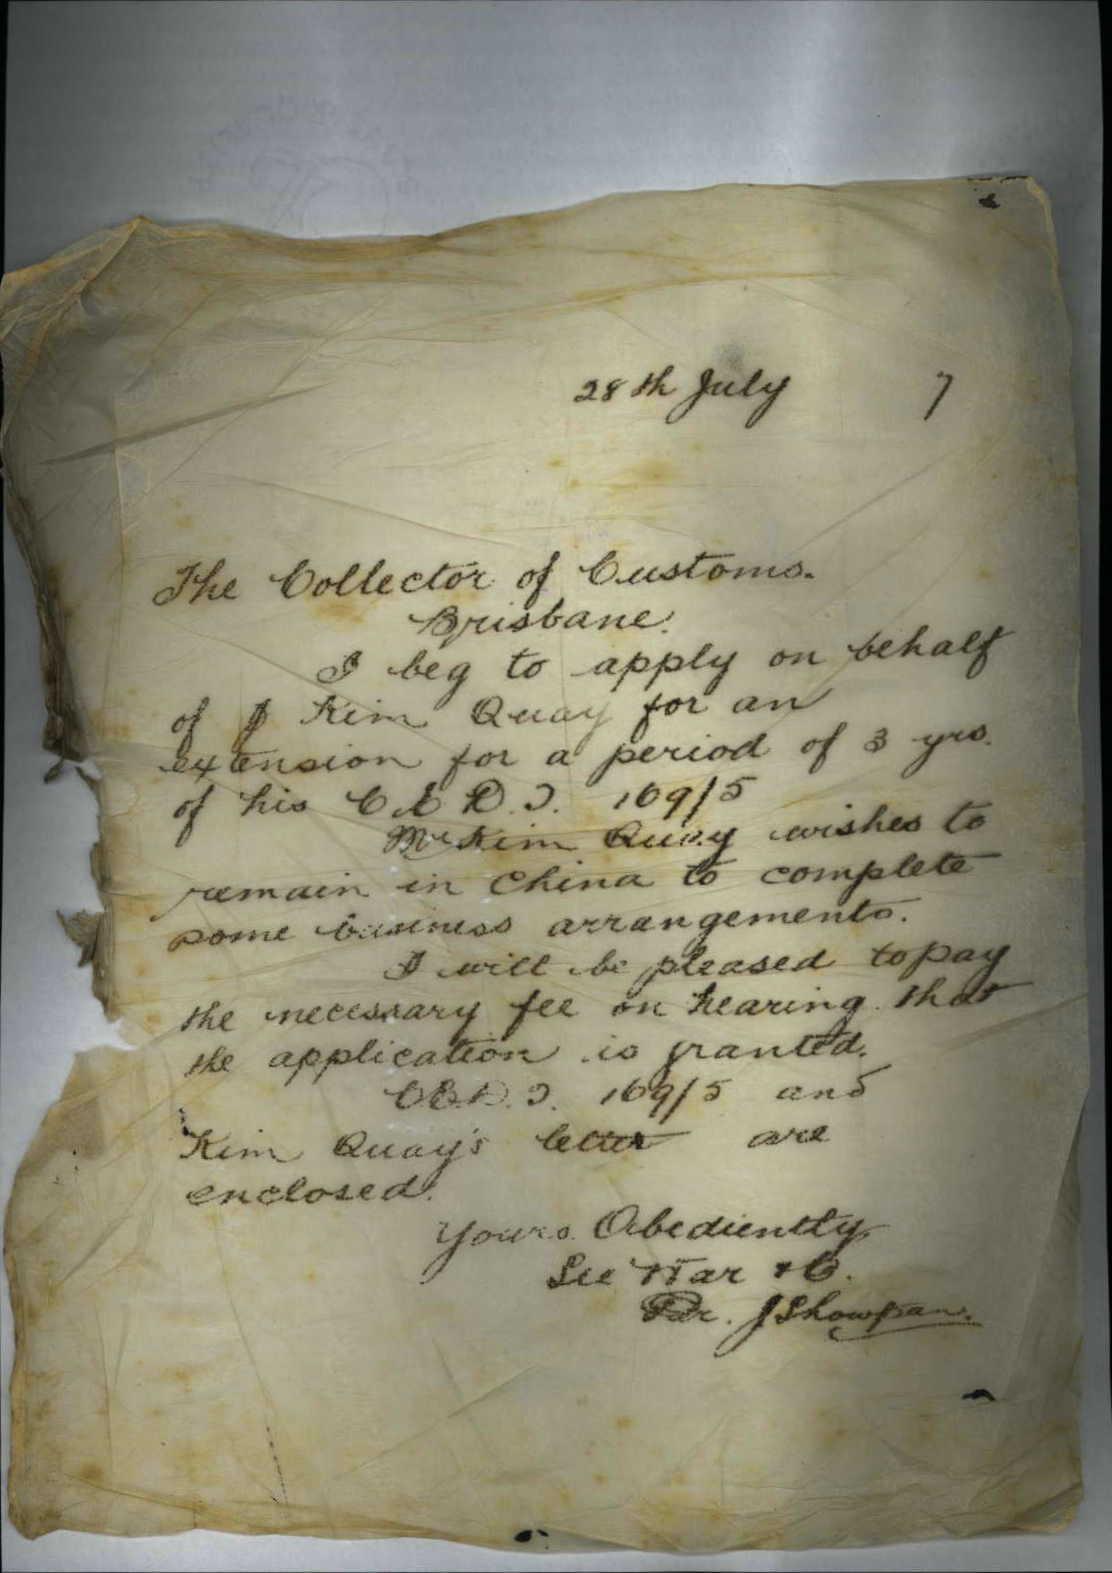 28th July 7
The Collector of Customs.
Brisbane.
I beg to apply on behalf
of J Kim Quay for an
extension for a period of 3 yrs.
of his C E D. T. 169/5
Mr Kim Quay wishes to
remain in China to complete
some business arrangements.
I will be pleased to pay
the necessary fee on hearing that
the application is granted.
C.E.D. T. 169/5 and
Kim Quay's letter are
enclosed.
Yours Obediently
See War & C.
Per. J Showpan.